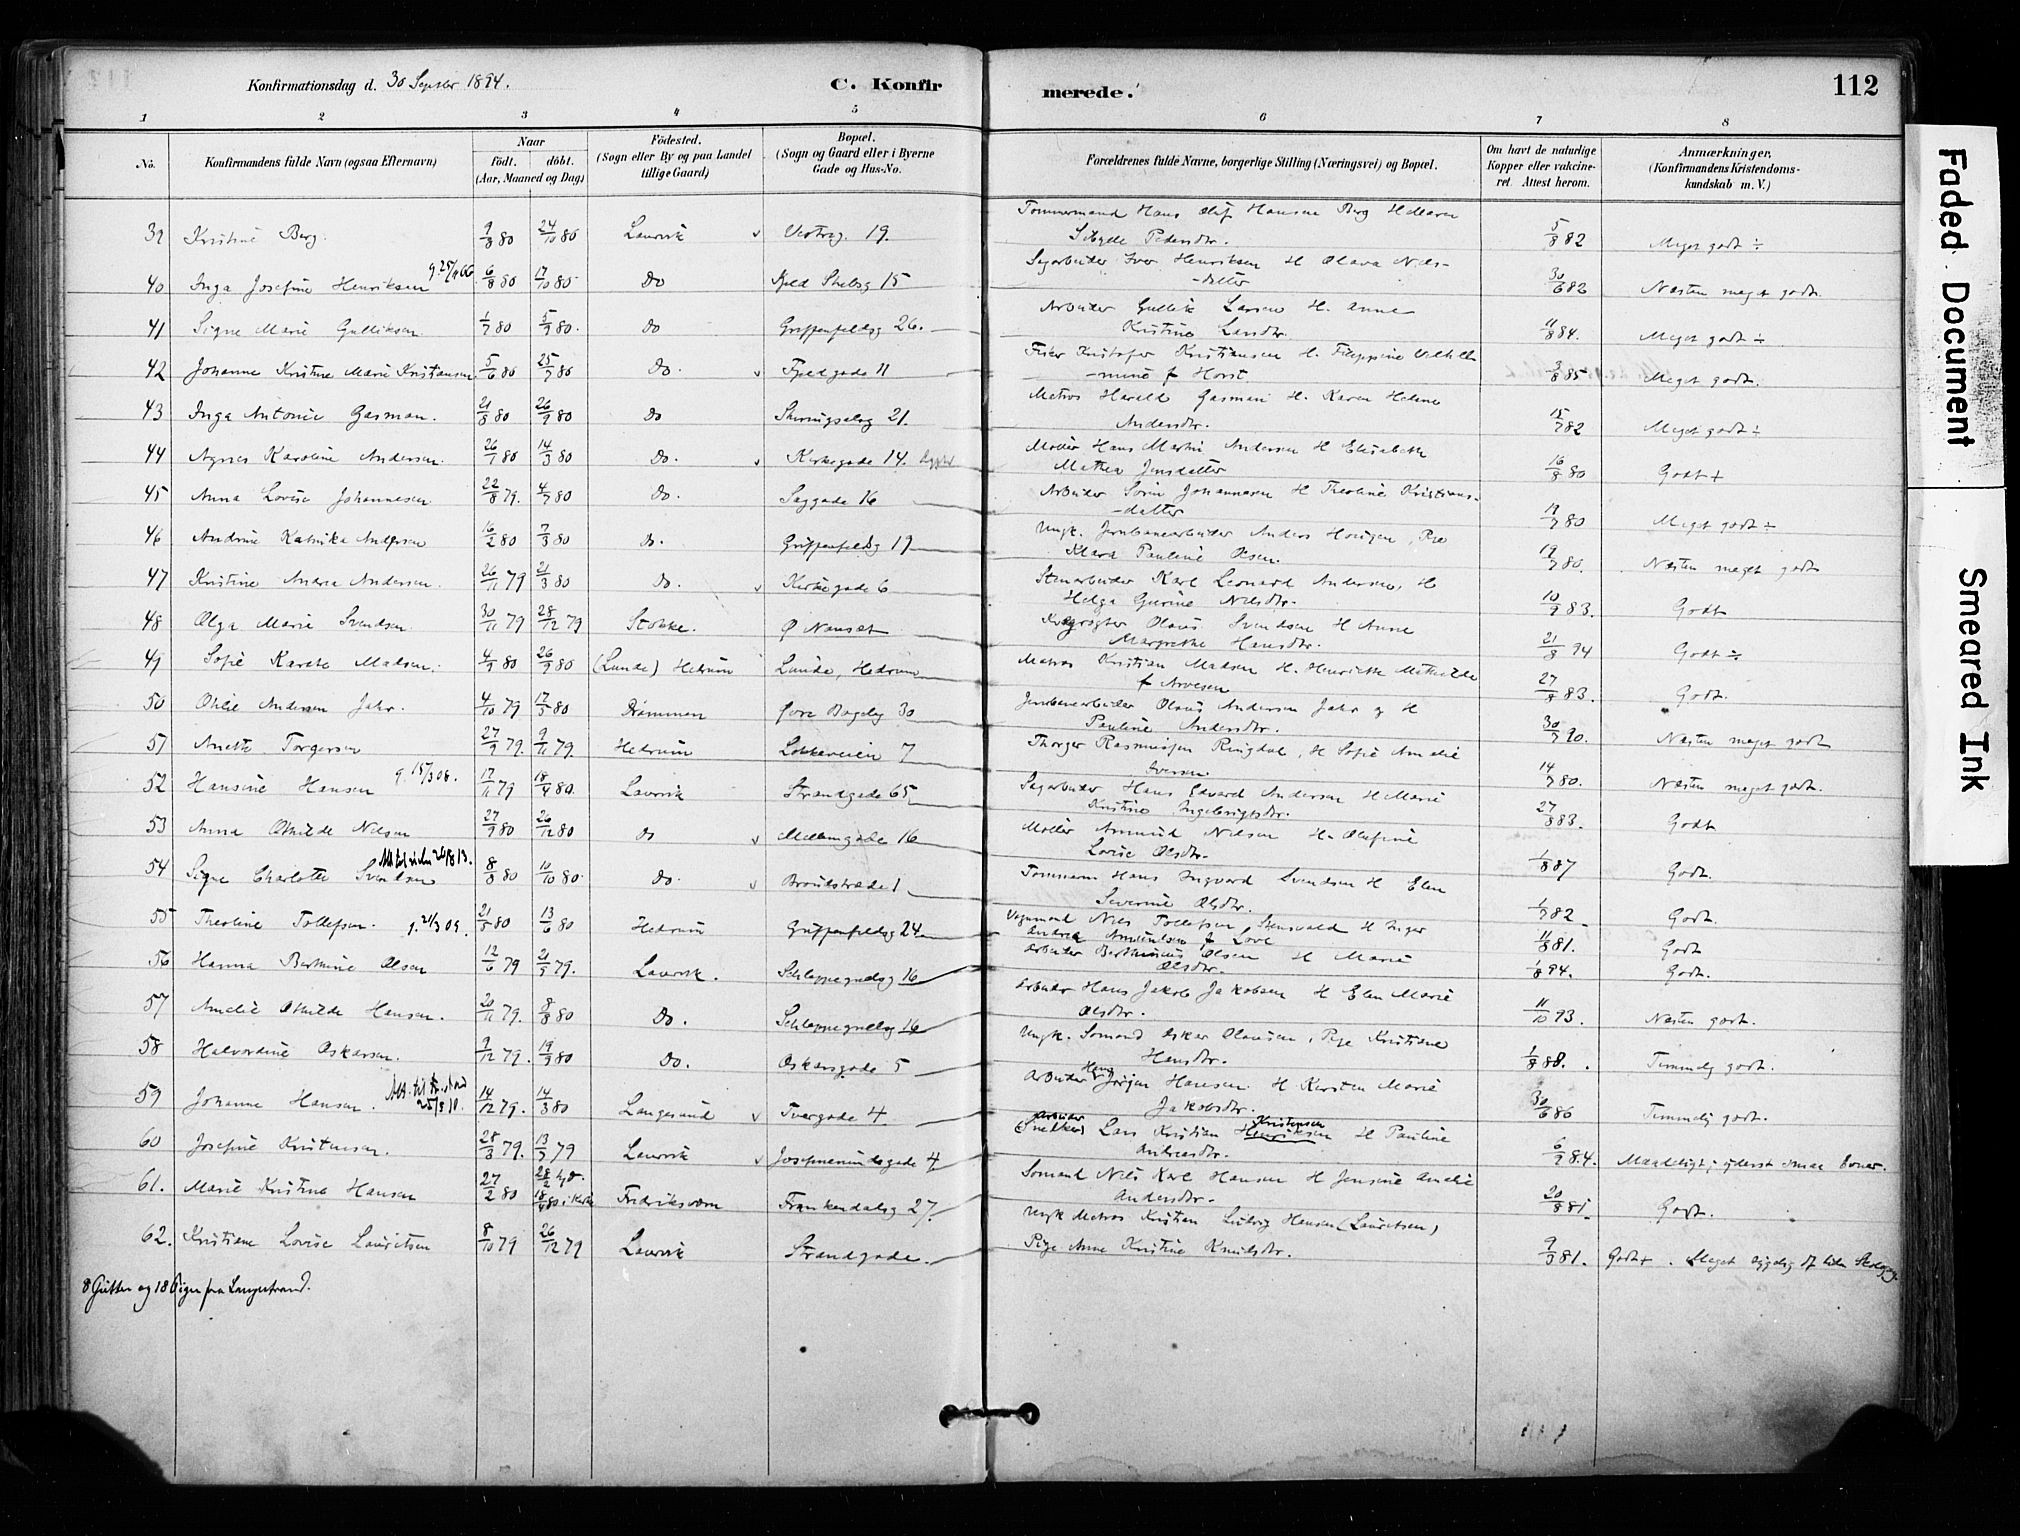 Konfirmationsdag d. 30 Septbr 1894.
C. Konfirmerede.
112
1 2 3 4 5 6 7 8
No.
Konfirmandens fulde Navn (ogsaa Efternavn)
Naar
födt. döbt.
(Aar, Maaned og Dag)
Födested.
(Sogn eller By og paa Landet tillige Gaard)
Bopæl.
(Sogn og Gaard eller i Byerne Gade og Hus-No.
Forældrenes fulde Navne, borgerlige Stilling (Næringsvei) og Bopæl.
Om havt de naturlige Kopper eller vakcineret. Attest herom.
Anmærkninger,
(Konfirmandens Kristendomskundskab m. V.)
39 Kristine Berg. 9/8 80 24/10 80 Laurvik v Vestreg. 19. Tømmermand Hans Olaf Hansen Berg H Maren Pedersdtr. 5/8 82 Meget godt ÷
40 Inga Josefine Henriksen 6/8 80 17/10 80 Do 15 Sagarbeider Iver Henriksen H Olava Nils-datter 30/6 82 Næsten meget godt.
41 Signe Marie Gulliksen. 1/7 80 5/9 80. Do Griffenfeldsg 26. Arbeider Gullik Larsen H. Anne Kristine Larsdtr. 11/8 84. Meget godt ÷
42 Johanne Kristine Marie Kristiansen. 5/6 80 25/7 80 Do. v Fjeldgade 11 Kristofer Kristiansen H. Filippine Vilhelmine f Horst. 3/8 85 Meget godt.
43 Inga Antonie Gasman. 21/8 80 26/9 80 Do Skiringsalsg 21. Matros Harald Gasman H. Karen Helene Andersdtr. 15/7 82 Meget godt ÷
44 Agnes Karoline Andersen. 26/1 80 14/3 80 Do. v Kirkegade 14. Møller Hans Martin Andersen H Elisabeth Mathea Jensdatter 16/8 80 Godt +
45 Anna Lovise Johannesen 22/8 79. 4/7 80 Do. Saggade 16 Arbeider Sørin Johannesen H Theoline Kristians-datter 80 Meget godt ÷
46 Andrine Katinka Andersen 16/2 80 7/3 80 Do. Griffenfeldsg 19 Ungk. Jernbanearbeider Anders Hougen, Pige Klara Pauline Olsen. 19/7 80. Næsten meget godt
47 Kristine Andrea Andersen. 26/11 79 21/3 80 Do. v Kirkegade 6 Stenarbeider Karl Leonard Andersen, H Helga Gurine Nilsdtr. 10/9 83. Godt
48 Olga Marie Svendsen 30/11 79 28/12 79 Stokke. Ø Nanset Kvægrøgter Olaus Svendsen H Anne Margrethe Hansdtr. 21/8 94 Godt ÷
49 Sofie Karete Madsen. 4/9 80 26/9 80 (Lunde) Hedrum Lunde, Hedrum Matros Kristian Madsen H. Henriette Mathilde f Arvesen 27/8 83. Godt.
50 Othilie Andersen Jahr. 4/10 79 17/5 80 Drammen Øvre Bøgelig 30 Jernbanearbeider Olaus Andersen Jahr og H Pauline Andersdtr. 30/7 90. Næsten meget godt
51 Anette Torgersen 27/9 79. 9/11 79. Hedrum Løkkeveien 7 Thorger Rasmussen Ringdal, H Sofie Amalie Iversen 14/7 80. Næsten meget godt.
52 Hansine Hansen g. 15/3 06. 17/11 79 18/4 80. Laurvik Strandgade 65 Sagarbeider Hans Edvard Andersen H Marie Kristine Ingebrigtsdtr. 27/8 83. Godt
53 Anna Othilde Nilsen 27/9 80 26/12 80 Do v Mellemgade 16 Møller Ammund Nilsen H. Olufine Lovise Olsdtr. 1/8 87 Godt.
54 Signe Charlotte Svendsen Att til vielse 20/8 13. 8/8 80 10/10 80. Do. v Brøndstræde 1 Tømmerm Hans Ingvard Svendsen H Elen Severine Olsdtr. 1/7 82 Godt.
55 Theoline Tollefsen. g. 21/3 09. 21/5 80 13/6 80 Hedrum Griffenfeldsg 24 Vognmand Nils Tollefsen Stensvold H Inger Andrea Amundsen f Love 11/8 81. Godt
56 Hanna Bertmine Olsen 12/6 79 21/9 79. Laurvik. Schleppegrellsg 16 Arbeider Berthinius Olsen H Marie Olsdtr. 1/8 94. Godt.
57 Amelie Othilde Hansen. 20/11 79. 8/8 80 Do. Schleppegrellsg 16 Arbeider Hans Jakob Jakobsen H Elen Marie Olsdtr. 11/10 93. Næsten godt.
58 Halvordine Oskarsen. 9/12 79. 19/9 80 Do. Oskarsgade 5 Ungk. Sømand Oskar Olausen, Pige Kristiane Hansdtr. 1/8 88. Temmelig godt.
59 Johanne Hansen. 25/8 10. 14/12 79. 14/3 80 Langesund v Tvergade 4 Arbeider Hans Jørgen Hansen H Karsten Marie Jakobsdtr. 30/6 86 Temmelig godt.
60 Josefine Kristensen. 28/3 79. 13/7 79 Laurvik v Josefinelundsgade 4 (Snedker) Arbeider Lars Kristian Henriksen Kristensen H Pauline Andreasdtr. 6/9 84. Maadeligt; yderst smaa Evner.
61. Marie Kristine Hansen 27/2 80 28/2 hjd. 18/4 80 i Kirke Fredriksværn Frankendalsg 27. Sømand Nils Karl Hansen H Jensine Amelie Andersdtr. 20/8 81. Godt.
62. Kristiane Lovise Lauritsen 8/10 79 26/12 79 Laurvik Strandgade. Ungk Matros Kristian Ludvig Hansen (Lauritsen) Pige Anne Kristine Knudsdtr. 9/9 81. Godt +. Meget sygelig og liden Skolegang.
8 Gutter og 18 Piger fra Langestrand.
Faded Document
Smeared Ink